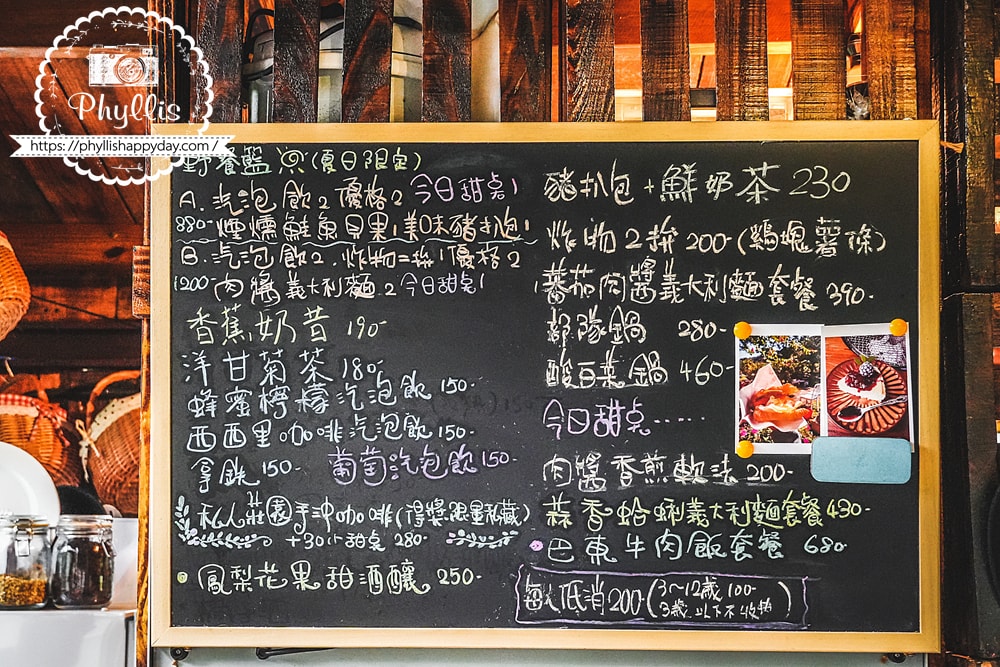 Phyllis
https://phyllishappyday.com/
野餐籃(夏日限定)
A. 汽泡飲2 優格2 今日甜桌1
880- 煙燻鮭魚貝果1美味豬扒包1
B. 汽泡飲2. 炸物=拚1優格2
1200- 肉醬義大利麵.2今日甜桌1
香蕉奶昔 190-
洋甘菊茶 180-
蜂蜜檸檬汽泡飲 150-
西西里咖啡汽泡飲 150-
拿鉄 150- 葡萄汽泡飲150-
私人莊園手沖咖啡(得獎.限量私藏)
+30小甜桌 280-
鳳梨花果甜酒釀 250-
豬扒包+鮮奶茶 230
炸物2拚 200-(鷄塊薯條)
蕃茄肉醬義大利麵套餐 390-
部隊鍋 280-
酸白菜鍋 460-
今日甜桌......
肉醬香煎軟法 200-
蒜香蛤蜊義大利麵套餐 430-
巴東牛肉飯套餐 680
每人低消200(3~12歲 100-
3歲以下不收物)